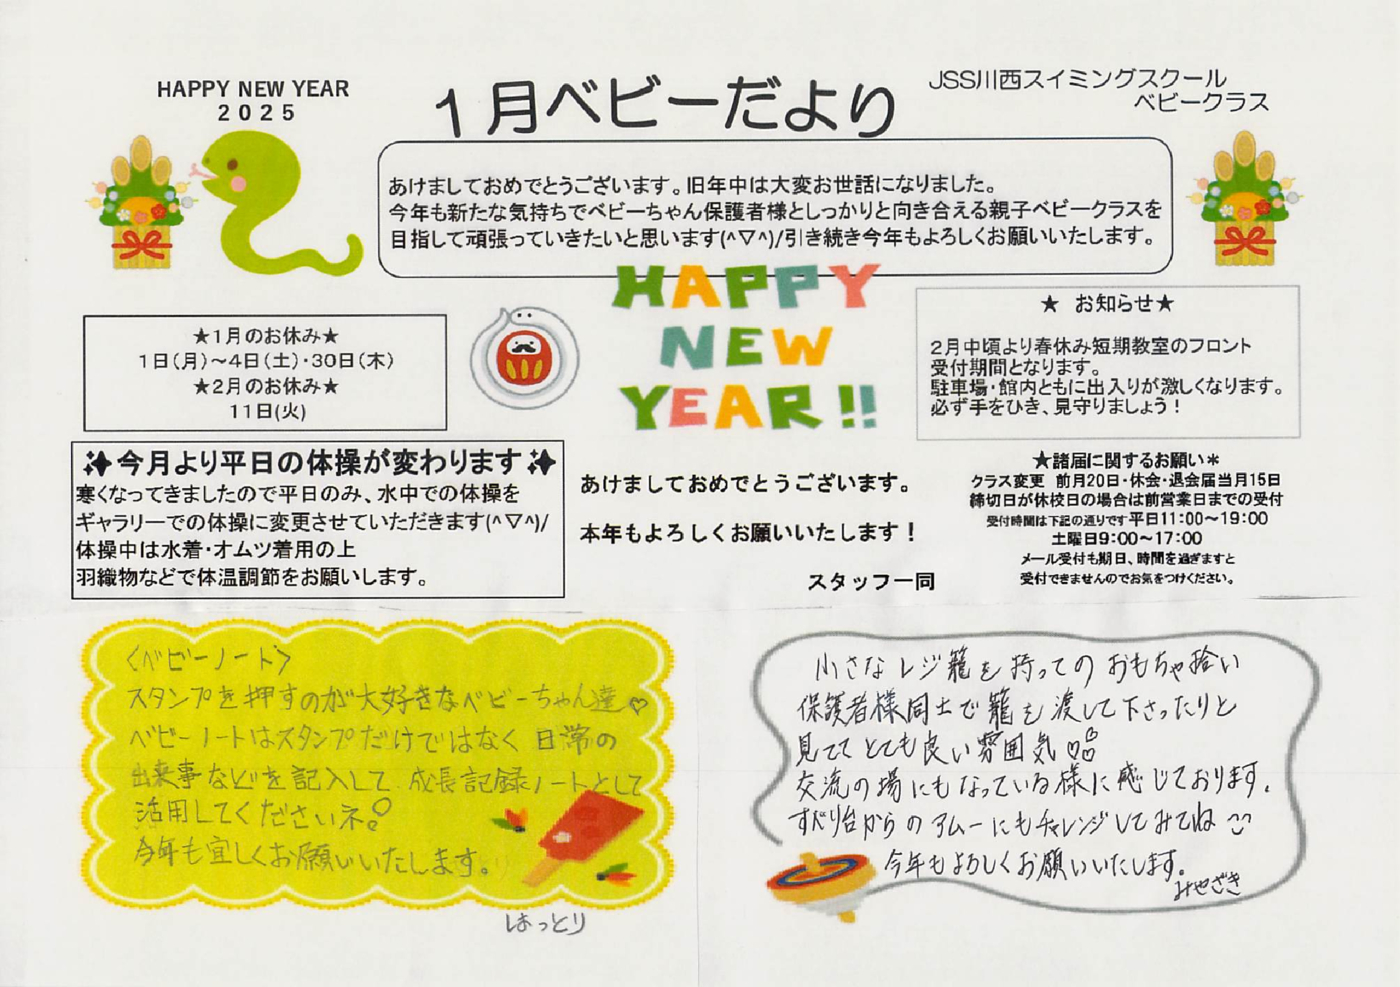 HAPPY NEW YEAR
2025
1月ベビーだより
JSS川西スイミングスクール
ベビークラス
あけましておめでとうございます。旧年中は大変お世話になりました。
今年も新たな気持ちでベビーちゃん保護者様としっかりと向き合える親子ベビークラスを
目指して頑張っていきたいと思います(^▽^)/引き続き今年もよろしくお願いいたします。
HAPPY
NEW
YEAR!!
★1月のお休み★
1日(月)～4日(土)・30日(木)
★2月のお休み★
11日(火)
★ お知らせ★
2月中頃より春休み短期教室のフロント
受付期間となります。
駐車場・館内ともに出入りが激しくなります。
必ず手をひき、見守りましょう!
今月より平日の体操が変わります
寒くなってきましたので平日のみ、水中での体操を
ギャラリーでの体操に変更させていただきます(^▽^)/
体操中は水着・オムツ着用の上
羽織物などで体温調節をお願いします。
あけましておめでとうございます。
本年もよろしくお願いいたします!
スタッフ一同
★諸届に関するお願い＊
クラス変更 前月20日・休会・退会届当月15日
締切日が休校日の場合は前営業日までの受付
受付時間は下記の通りです平日11:00～19:00
土曜日9:00～17:00
メール受付も期日、時間を過ぎますと
受付できませんのでお気をつけください。
〈ベビーノート〉
スタンプを押すのが大好きなベビーちゃん達♡
ベビーノートはスタンプだけではなく日常の
出来事などを記入して、成長記録ノートとして
活用してくださいネ!
今年も宜しくお願いいたします。
はっとり
小さなレジ籠を持ってのおもちゃ拾い
保護者様同士で籠を渡して下さったりと
見ててとても良い雰囲気♡
交流の場にもなっている様に感じております。
すべり台からのアムーにもチャレンジしてみてね
今年もよろしくお願いいたします。
みやざき